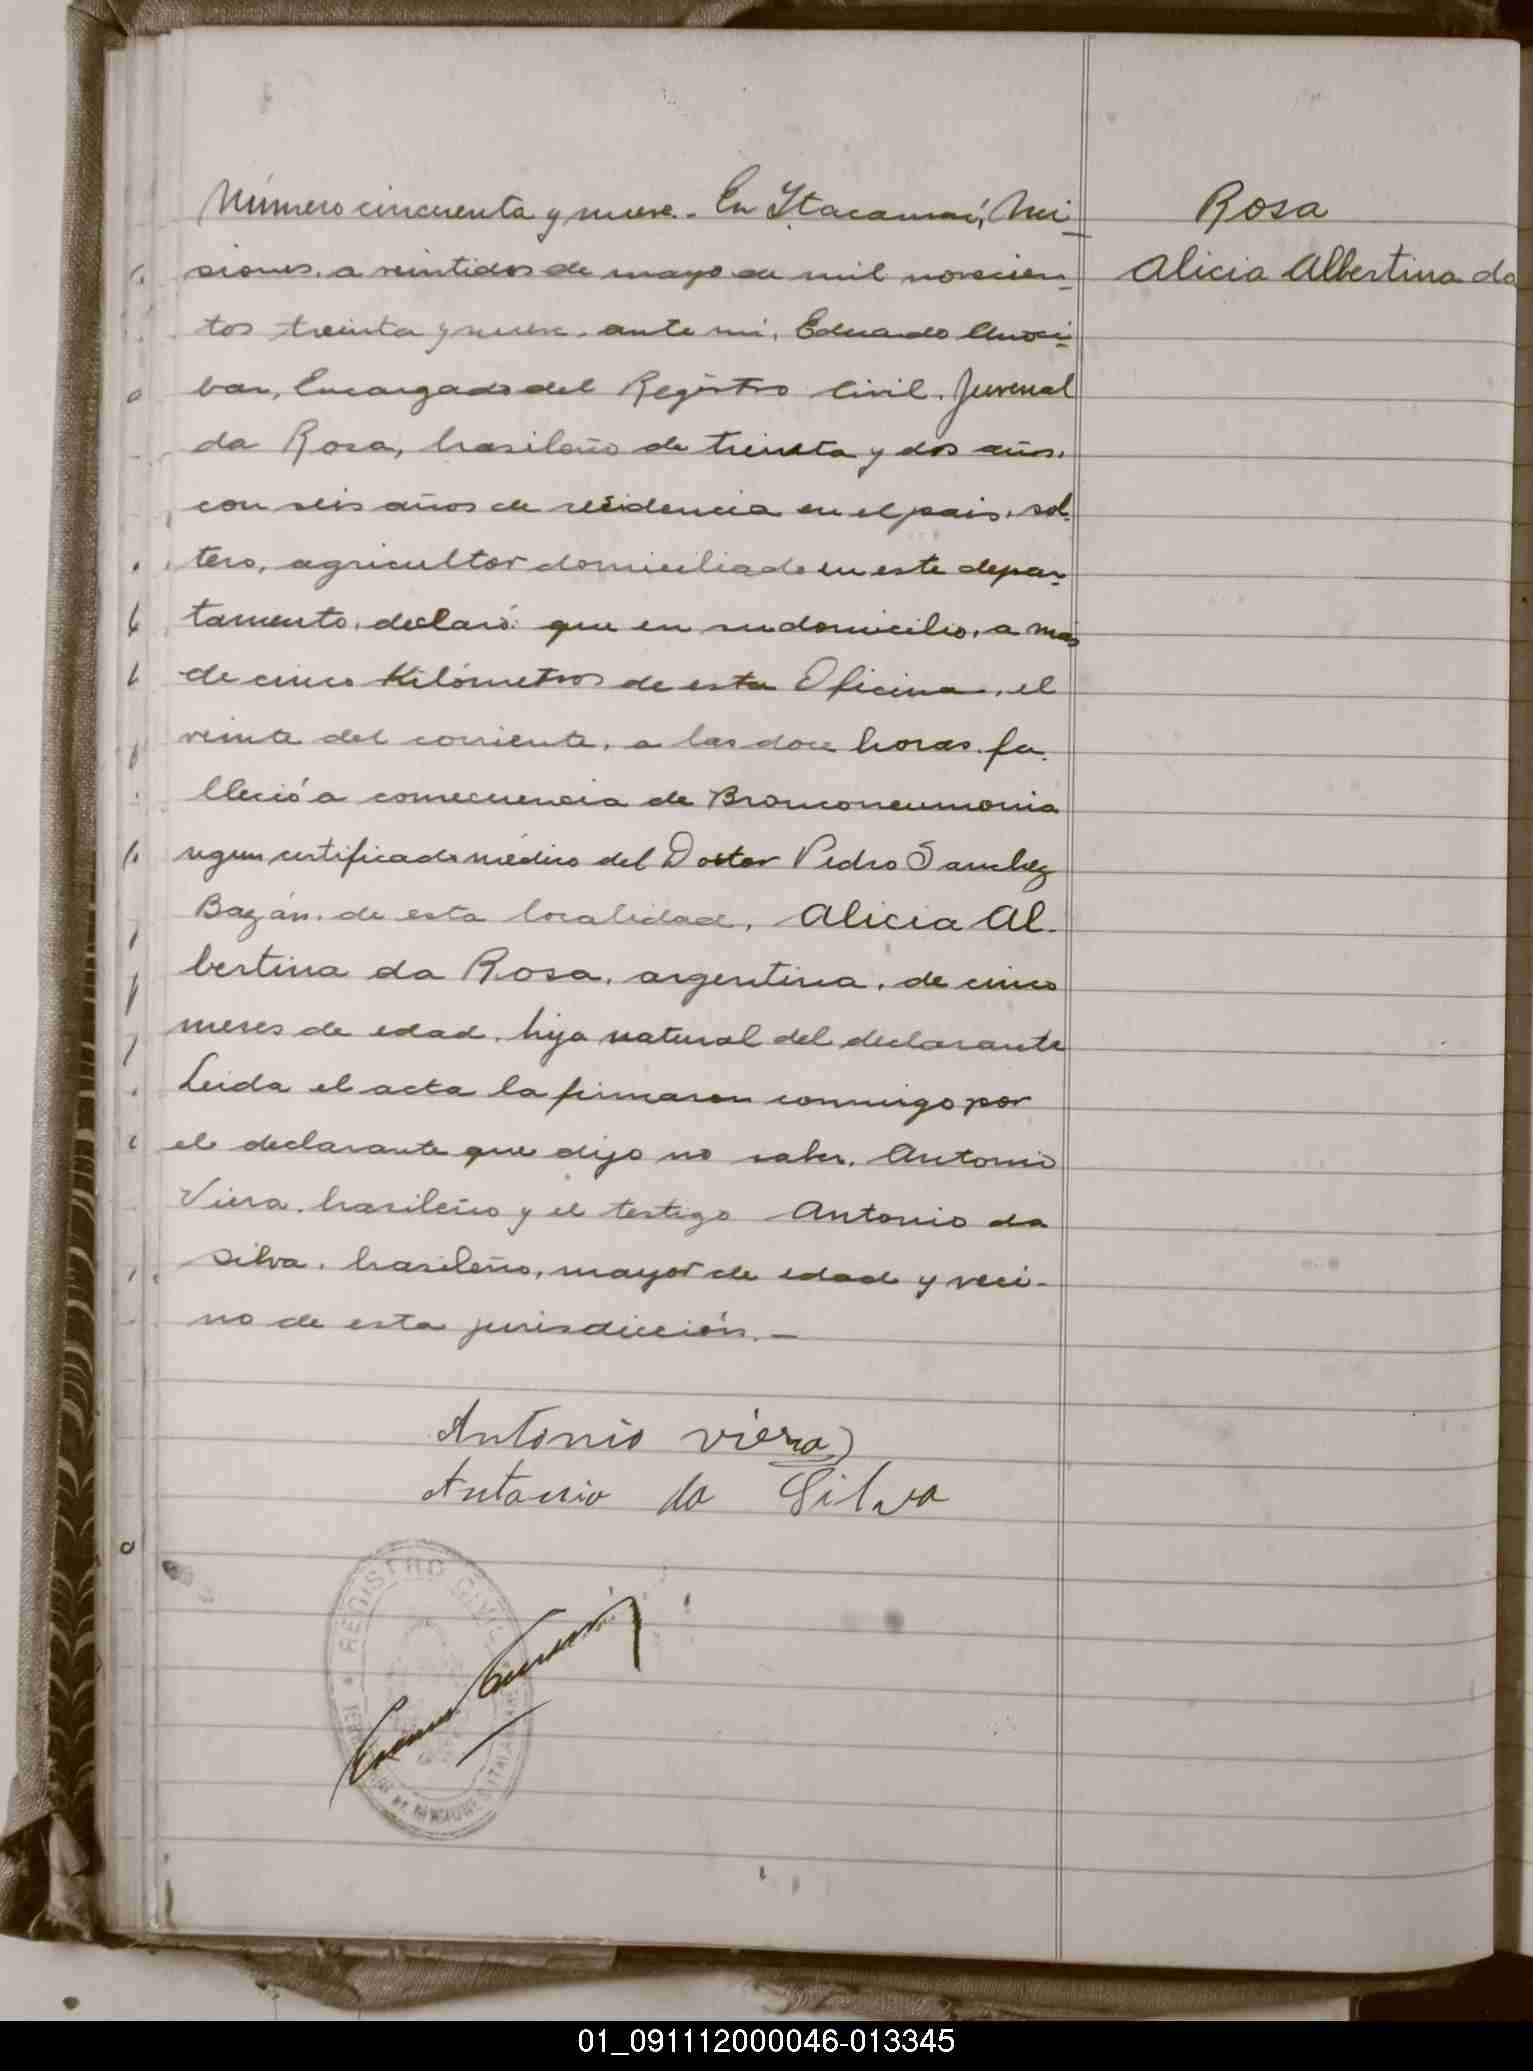 Número cincuenta y nueve.- En Itacaruaré, Mi-
siones, a veintidos de mayo de mil novecien-
tos treinta y nueve, ante mi, Eduardo
bar, Encargado del Registro Civil, Juvenal
da Rosa, brasileño de treinta y dos años,
con seis años de residencia en el pais, sol-
tero, agricultor domiciliado en este depar-
tamento, declaró: que en su domicilio, a mas
de cinco Kilómetros de esta Oficina, el
veinte del corriente, a las doce horas, fa-
lleció a consecuencia de Bronconeumonia
segun certificado médico del Doctor Pedro Sanchez
Bazán, de esta localidad, Alicia Al-
bertina da Rosa, argentina, de cinco
meses de edad, hija natural del declarante
Leida el acta la firmaron conmigo por
el declarante que dijo no saber, Antonio
Viera, brasileño y el testigo Antonio da
Silva, brasileño, mayor de edad y veci-
no de esta jurisdicción.-
Rosa
Alicia Albertina da
Antonio viera
Antonio da Silva
REGISTRO CIVIL
01_091112000046-013345